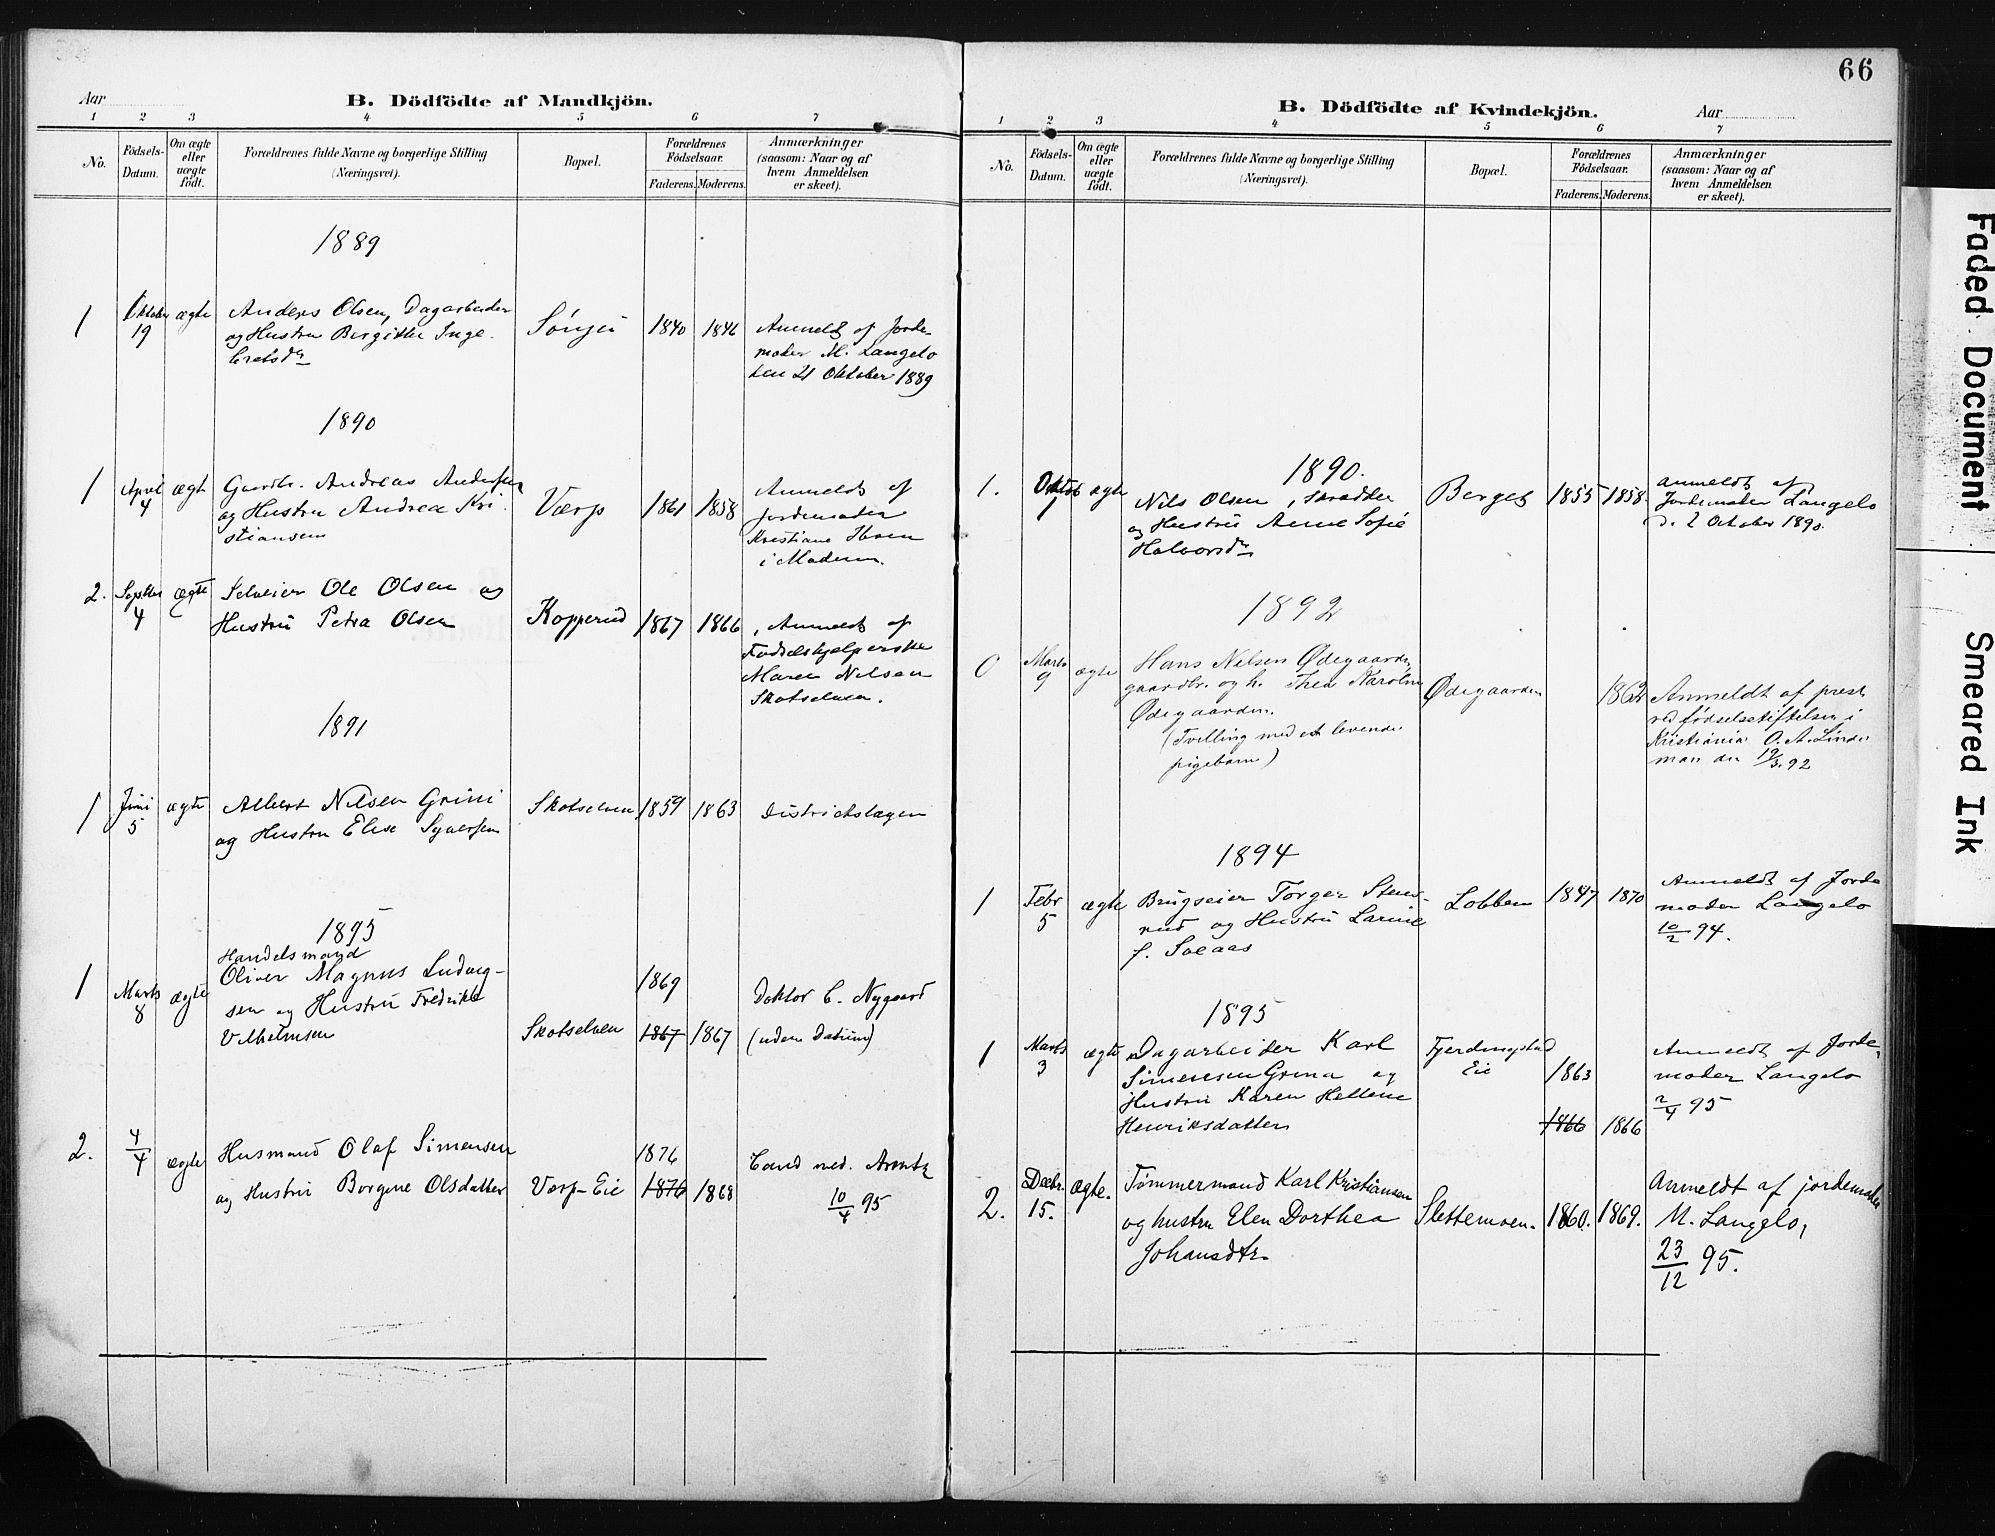 Aar
B. Dödfödte af Mandkjön.
1 2 3 4 5 6 7
No.
Födsels-
Datum.
Om ægte
eller
uægte
födt.
Forældrenes fulde Navne og borgerlige Stilling
(Næringsvei).
Bopæl.
Forældrenes
Födselsaar.
Faderens. Moderens.
Anmærkninger
(saasom: Naar og af
hvem Anmeldelsen
er skeet).
1889
1 Oktober
19
ægte
Anders Olsen, Dagarbeider
og Hustru Bergitte Inge-
bretsdr
1840 1846
Anmeldt af Jorde-
moder M. Langelo
den 21 Oktober 1889
1890
1 April
4
ægte
Gaardbr. Andreas Andersen
og Hustru Andrea Kri-
stiansen
Værp
1861 1858
Anmeldt af
jordemoder
Kristiane
i Modum.
2. Septbr
4
ægte
Selveier Ole Olsen og
Hustru Petra Olsen
Kopperud
1867 1866
Anmeldt af
Fødselshjelperske
Maren Nilsen
Skotselven.
1891
1 Juni
5
ægte
Albert Nilsen Grini
og Hustru Elise Syversen
Skotselven
1859 1863
Distriktslægen
1895
1 Marts
8
ægte
Handelsmand
Oliver Magnus Ludvig-
sen og Hustru Fredrikke
Vilhelmsen
Skotselven
1869
1867 1867
Doktor C. Nygaard
(uden Datum)
2. 4/4
ægte
Husmand Olaf Simensen
og Hustru Borgine Olsdatter
Værp-Eie
1876
1876 1868
Cand med. Arentz
10/4 95
66
B. Dödfödte af Kvindekjön.
Aar
1 2 3 4 5 6 7
No.
Födsels-
Datum.
Om ægte
eller
uægte
födt.
Forældrenes fulde Navne og borgerlige Stilling
(Næringsvei).
Bopæl.
Forældrenes
Födselsaar.
Faderens. Moderens.
Anmærkninger
(saasom: Naar og af
hvem Anmeldelsen
er skeet).
1890.
1. Oktob
1
ægte
Nils Olsen, skrædder
og Hustru Anne Sofie
Halvorsdr
Berget
1855 1858
anmeldt af
Jordemoder Langelo
d. 2 October 1890.
1892
0 Marts
9
ægte
Hans Nilsen Ødegaarden
gaardbr. og h. Thea Karoline
Ødegaarden.
(Tvilling med et levende
pigebarn)
Ødegaarden
1862
Anmeldt af prest
ved fødselsstiftelsen i
Kristiania O. A. Linde-
man den 19/3.92
1894
1 Febr
5
ægte
Brugseier Torger Stens-
rud og Hustru Larine
f. Solaas
Lobben
1847 1870
Anmeldt af Jorde
moder Langelo
10/2 94.
1895
1 Marts
3
ægte
Dagarbeider Karl
Simensen Grina og
Hustru Karen Hellene
Henriksdatter
Fjerdingstad
Eie
1863
1866 1866
Anmeldt af Jorde-
moder Langelo
2/4 95
2. Decbr.
15.
ægte.
Tømmermand Karl Kristiansen
og hustru Elen Dorthea
Johansdtr.
Slettemoen.
1860. 1869.
Anmeldt af jordemoder
M. Langelo,
23/12 95.
Faded Document
Smeared Ink